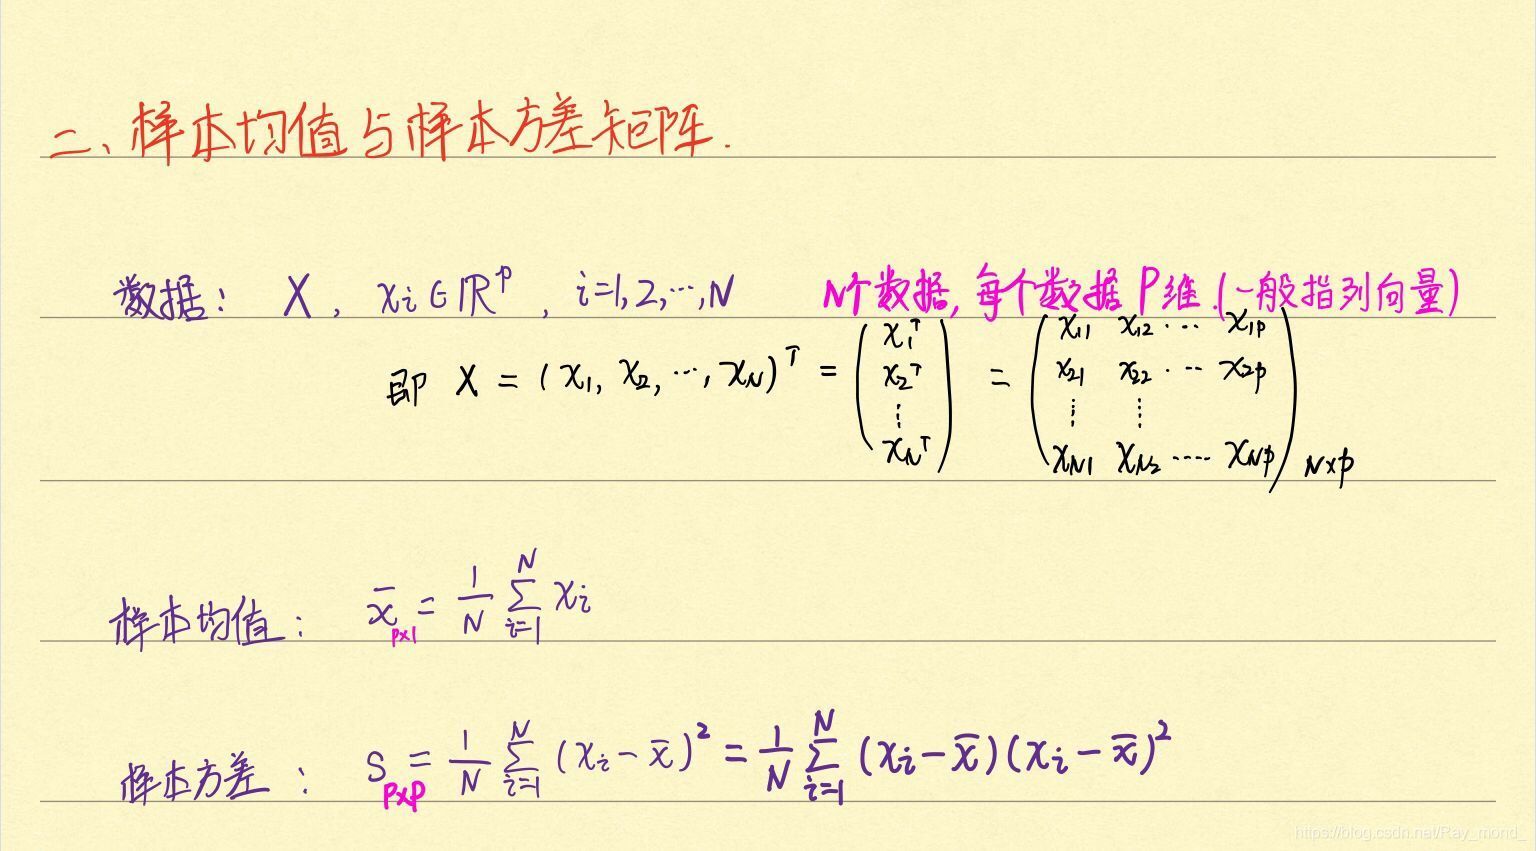 二、样本均值与样本方差矩阵.
数据: X, xᵢ∈ℝᵖ, i=1,2,⋯,N N个数据,每个数据P维.(一般指列向量)
即 X = (x₁, x₂, ⋯, x_N)ᵀ = (x₁ᵀ x₂ᵀ ⋮ x_Nᵀ) = (x₁₁ x₁₂ ⋯ x₁ₚ x₂₁ x₂₂ ⋯ x₂ₚ ⋮ ⋮ x_N1 x_N2 ⋯⋯ x_Np) N×p
样本均值: x̄ p×1 = 1/N ∑_{i=1}^{N} xᵢ
样本方差: S p×p = 1/N ∑_{i=1}^{N} (xᵢ - x̄)² = 1/N ∑_{i=1}^{N} (xᵢ - x̄)(xᵢ - x̄)²
https://blog.csdn.net/Ray_mond_